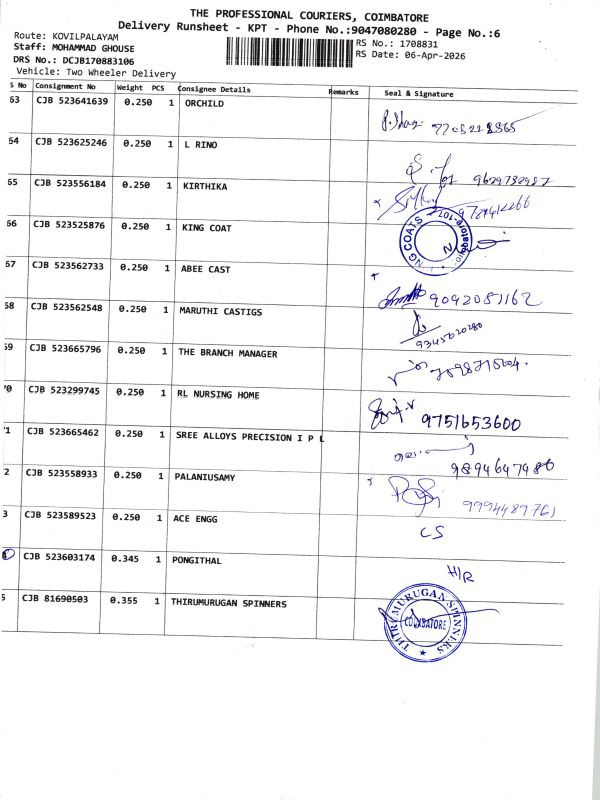 THE PROFESSIONAL COURIERS, COIMBATORE
Delivery Runsheet - KPT - Phone No.:9047080280 - Page No.:6
Route: KOVILPALAYAM
RS No.: 1708831
Staff: MOHAMMAD GHOUSE
RS Date: 06-Apr-2026
DRS No.: DCJB170883106
Vehicle: Two Wheeler Delivery
S No Consignment No Weight PCS Consignee Details Remarks Seal & Signature
63 CJB 523641639 0.250 1 ORCHILD
64 CJB 523625246 0.250 1 L RINO
65 CJB 523556184 0.250 1 KIRTHIKA
66 CJB 523525876 0.250 1 KING COAT NG COATS
67 CJB 523562733 0.250 1 ABEE CAST 9042081162
68 CJB 523562548 0.250 1 MARUTHI CASTIGS 9345020280
69 CJB 523665796 0.250 1 THE BRANCH MANAGER
70 CJB 523299745 0.250 1 RL NURSING HOME 9751653600
71 CJB 523665462 0.250 1 SREE ALLOYS PRECISION I P L 9894647980
2 CJB 523558933 0.250 1 PALANIUSAMY 9994489761
3 CJB 523589523 0.250 1 ACE ENGG CS
CJB 523603174 0.345 1 PONGITHAL H/R
5 CJB 81690503 0.355 1 THIRUMURUGAN SPINNERS THIRUMURUGAN SPINNERS COIMBATORE